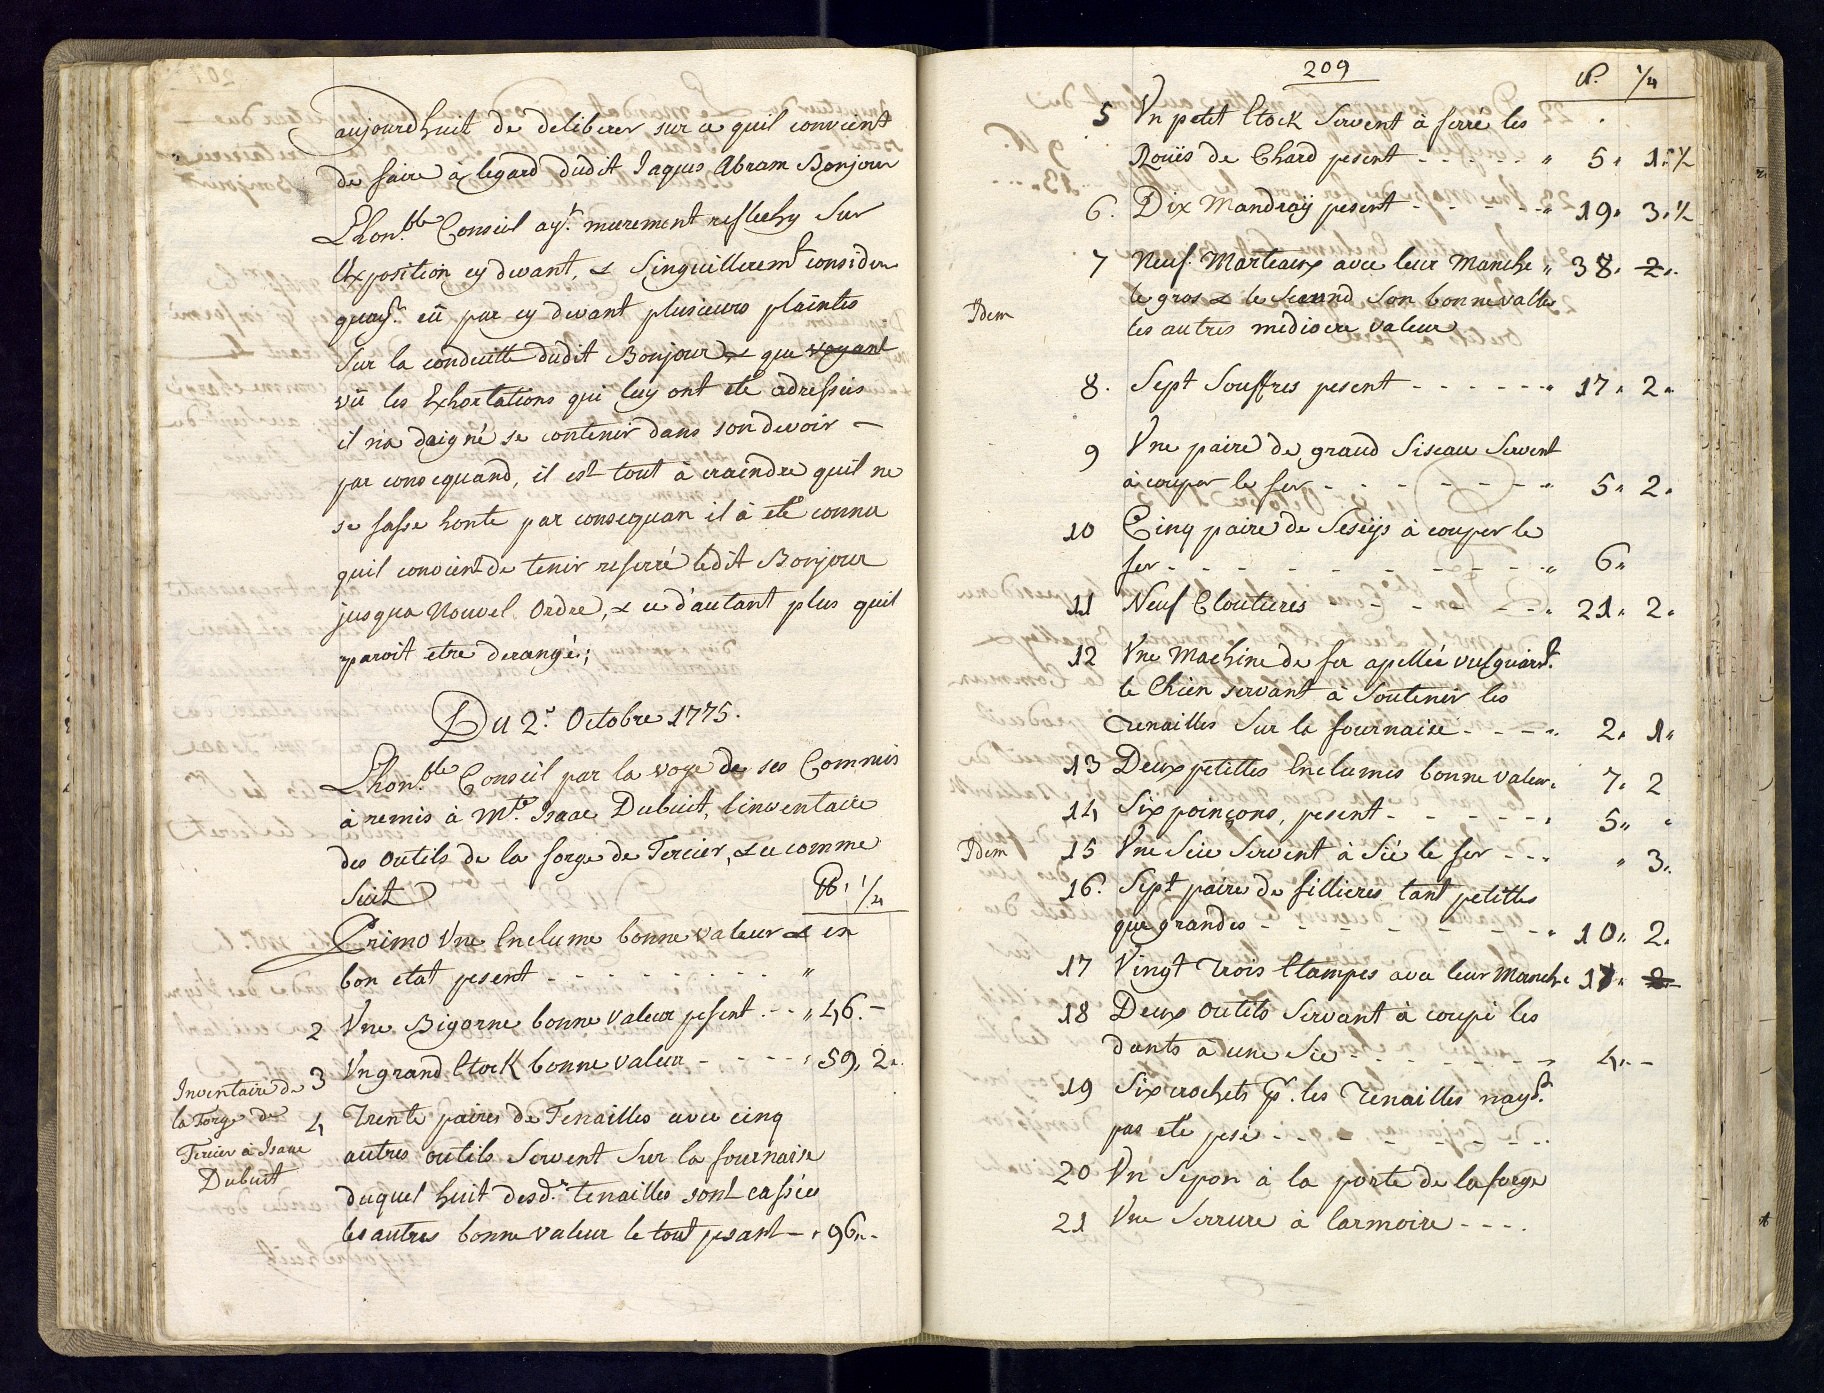 aujourdhuit de deliberer sur ce quil convient
de faire à legard dudit Jaques Abram Bonjour
L'hon.ble Conseil ay.t murement reflechy Sur
l'Exposition cy devant, & Singuillierem.t consider
quay.t eü par cy devant plusieurs plaintes
Sur la conduitte dudit Bonjour & que voyant
vü les Exhortations qui luy ont eté adressées
il n'a daigné se contenir dans son devoir –
par consequand, il est tout à craindre quil ne
se fasse honte par consequan il à eté connu
quil convient de tenir reserré ledit Bonjour
jusqua Nouvel Ordre, & ce d'autant plus quil
paroit etre derangé;
Du 2.e Octobre 1775.
L'hon.ble Conseil par la voye de ses Commis
à remis à M.re Isaac Dubuit, linventaire
des outils de la forge de Tercier, & ce comme
Suit
℔. 1/4
Primo Vne Enclume bonne valeur & en
bon etat pesent - - - - - - - - "
2 Vne Bigorne bonne valeur pesent - - " 46. –
3 Vn grand Etock bonne valeur - - - - " 59, 2 "
Inventaire de
la Forge de
Tercier à Isaac
Dubuit
4 Trente paires de Tenailles avec cinq
autres outils Servent Sur la fournaise
duquel huit desd.s tenailles sont cassées
les autres bonne valeur le tout pesant – " 96 " -
209
℔. 1/4
5 Vn petit Etock Servent à ferré les
Roüës de Chard pesent - - - - - " 5 " 1 " 1/2
6. Dix Mandrays pesent - - - - - - " 19 " 3 " 1/2
7 Neuf Marteaux avec leur Manche " 38 " 2 "
Idem
le gros & le Second Son bonne valler
les autres mediocre valeur
8. Sept Souffres pesent - - - - - - " 17 " 2 "
9 Vne paire de grand Siseau Servent
à couper le fer - - - - - - - " 5 " 2 "
10 Cinq paire de Seseijs à couper le
fer - - - - - - - - - - - - " 6 "
11 Neuf Cloutieres - - - - - - " 21 " 2 "
12 Vne Machine de fer apellée vulguair.t
le Chien servant à Soutenir les
Tenailles Sur la fournaise - - - - " 2 " 1 "
13 Deux petittes Enclumes bonne valeur " 7 " 2
14 Six poinçons, pesent - - - - - - " 5 " "
Idem
15 Vne Scie Servent à Sié le fer - - - " 3 "
16. Sept paire de fillieres tant petittes
que grandes - - - - - - - - - " 10 " 2 "
17 Vingt Trois Etampes avec leur Manche 17 " 2
18 Deux Outils Servant à coupé les
dants à une Sie - - - - - - - - 4 " -
19 Six crochets p.r les Tenailles nay.t
pas eté pesé - - - - - - - -
20 Vn Sepon à la porte de la forge
21 Vne Serrure à larmoire - - - -